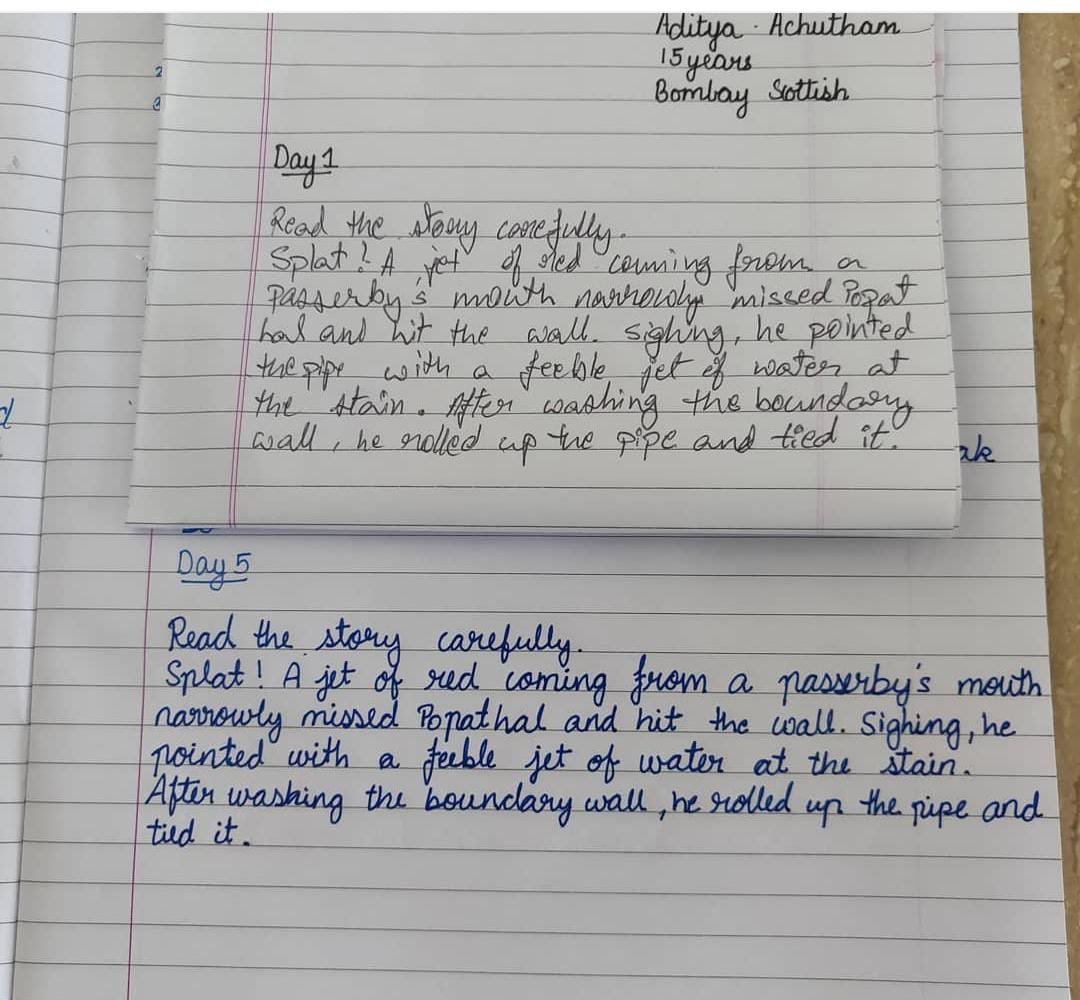 Aditya. Achutham
15 years
Bombay Scottish
Day 1
Read the story carefully.
Splat! A jet of red coming from a
passerby's mouth narrowly missed Popat
hal and hit the wall. sighing, he pointed
the pipe with a feeble jet of water at
the stain. After washing the boundary
wall, he rolled up the pipe and tied it.
ak
Day 5
Read the story carefully.
Splat! A jet of red coming from a passerby's mouth
narrowly missed Popathal and hit the wall. Sighing, he
pointed with a feeble jet of water at the stain.
After washing the boundary wall, he rolled up the pipe and
tied it.